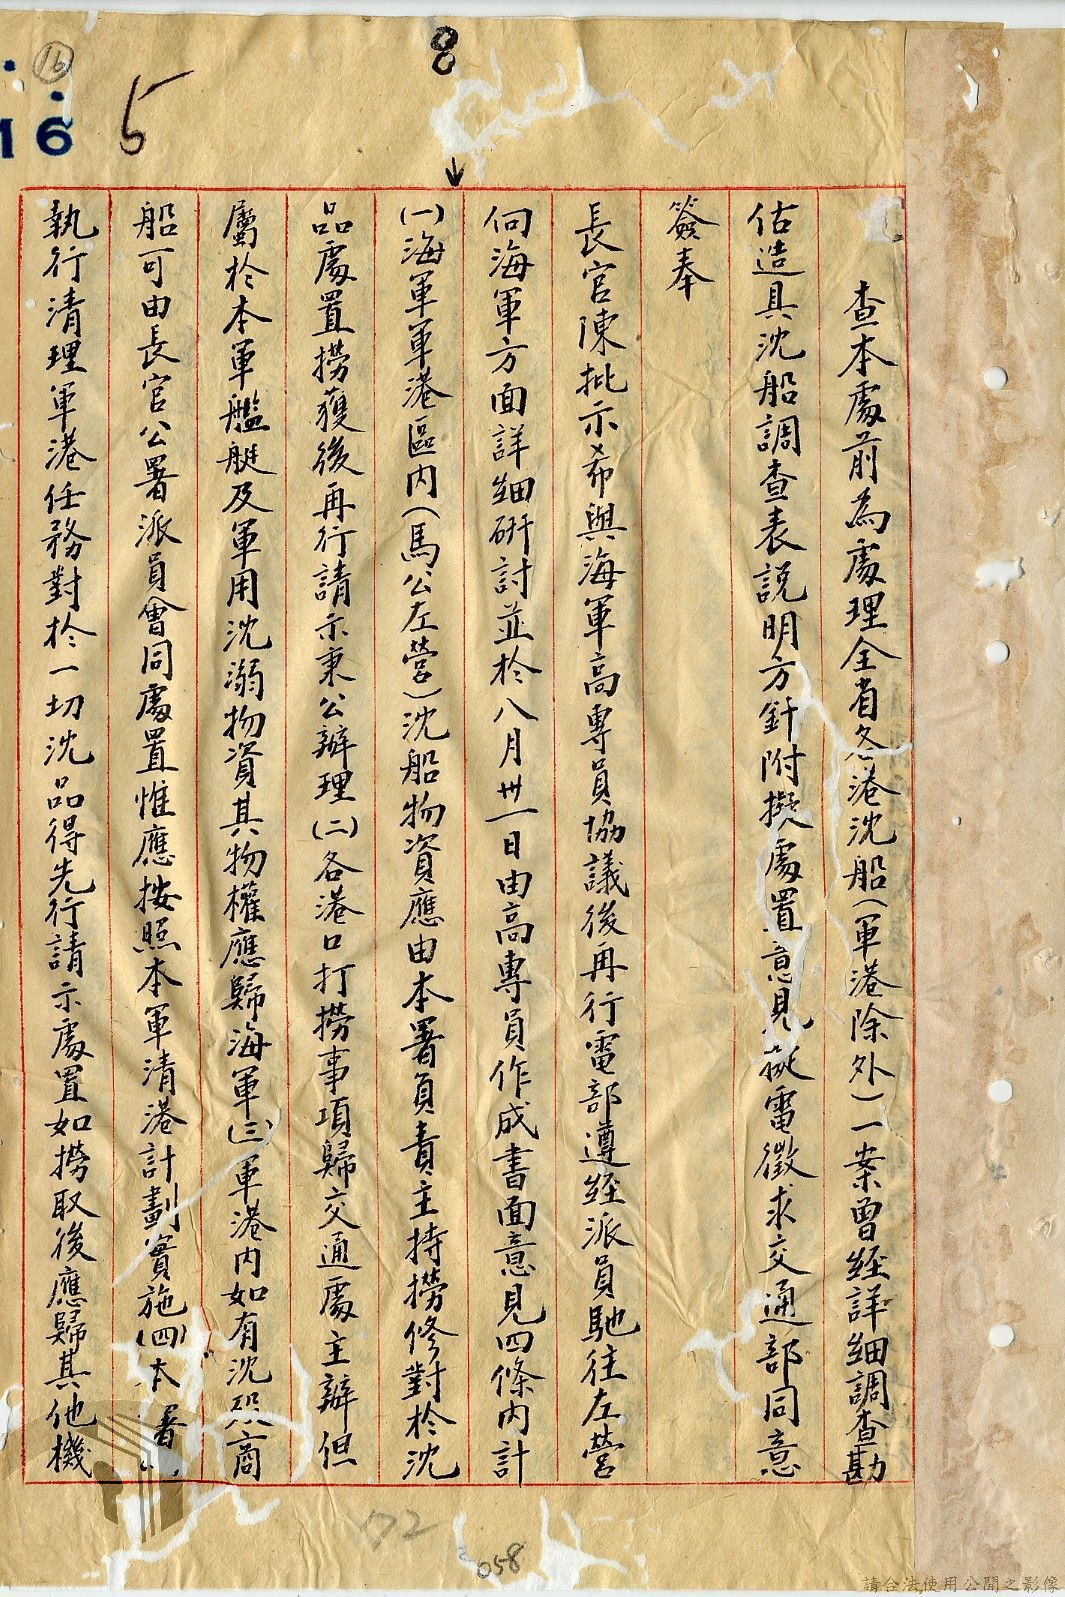 16
16
5
8
查本處前為處理全省各港沈船（軍港除外）一案曾經詳細調查勘
估造具沈船調查表說明方針附擬處置意見拟電徵求交通部同意
簽奉
長官陳批示希與海軍高專員協議後再行電部遵經派員馳往左營
向海軍方面詳細研討並於八月卅一日由高專員作成書面意見四條內計
（一）海軍軍港區內（馬公左營）沈船物資應由本署負責主持撈修對於沈
品處置撈獲後再行請示秉公辦理（二）各港口打撈事項歸交通處主辦但
屬於本軍艦艇及軍用沈溺物資其物權應歸海軍（三）軍港內如有沈沒商
船可由長官公署派員會同處置惟應按照本軍清港計劃實施（四）本署
執行清理軍港任務對於一切沈品得先行請示處置如撈取後應歸其他機
72
058
請合法使用公開之影像